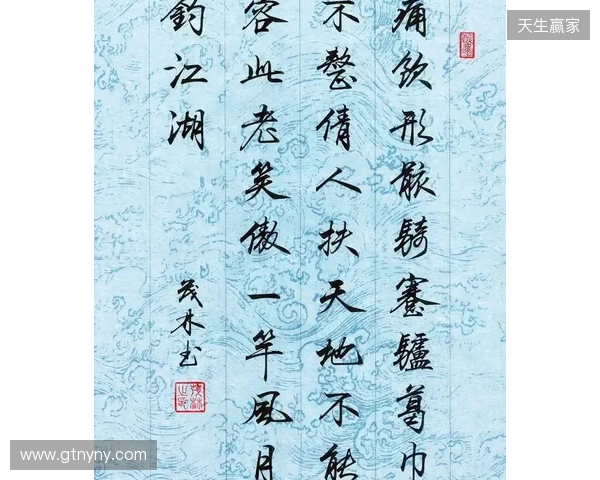 痛饮形骸騎蹇驢葛巾
不整倩人扶天地不能
容此老笑傲一竿風月
釣江湖
茂林书
天生赢家
www.gtnyny.com